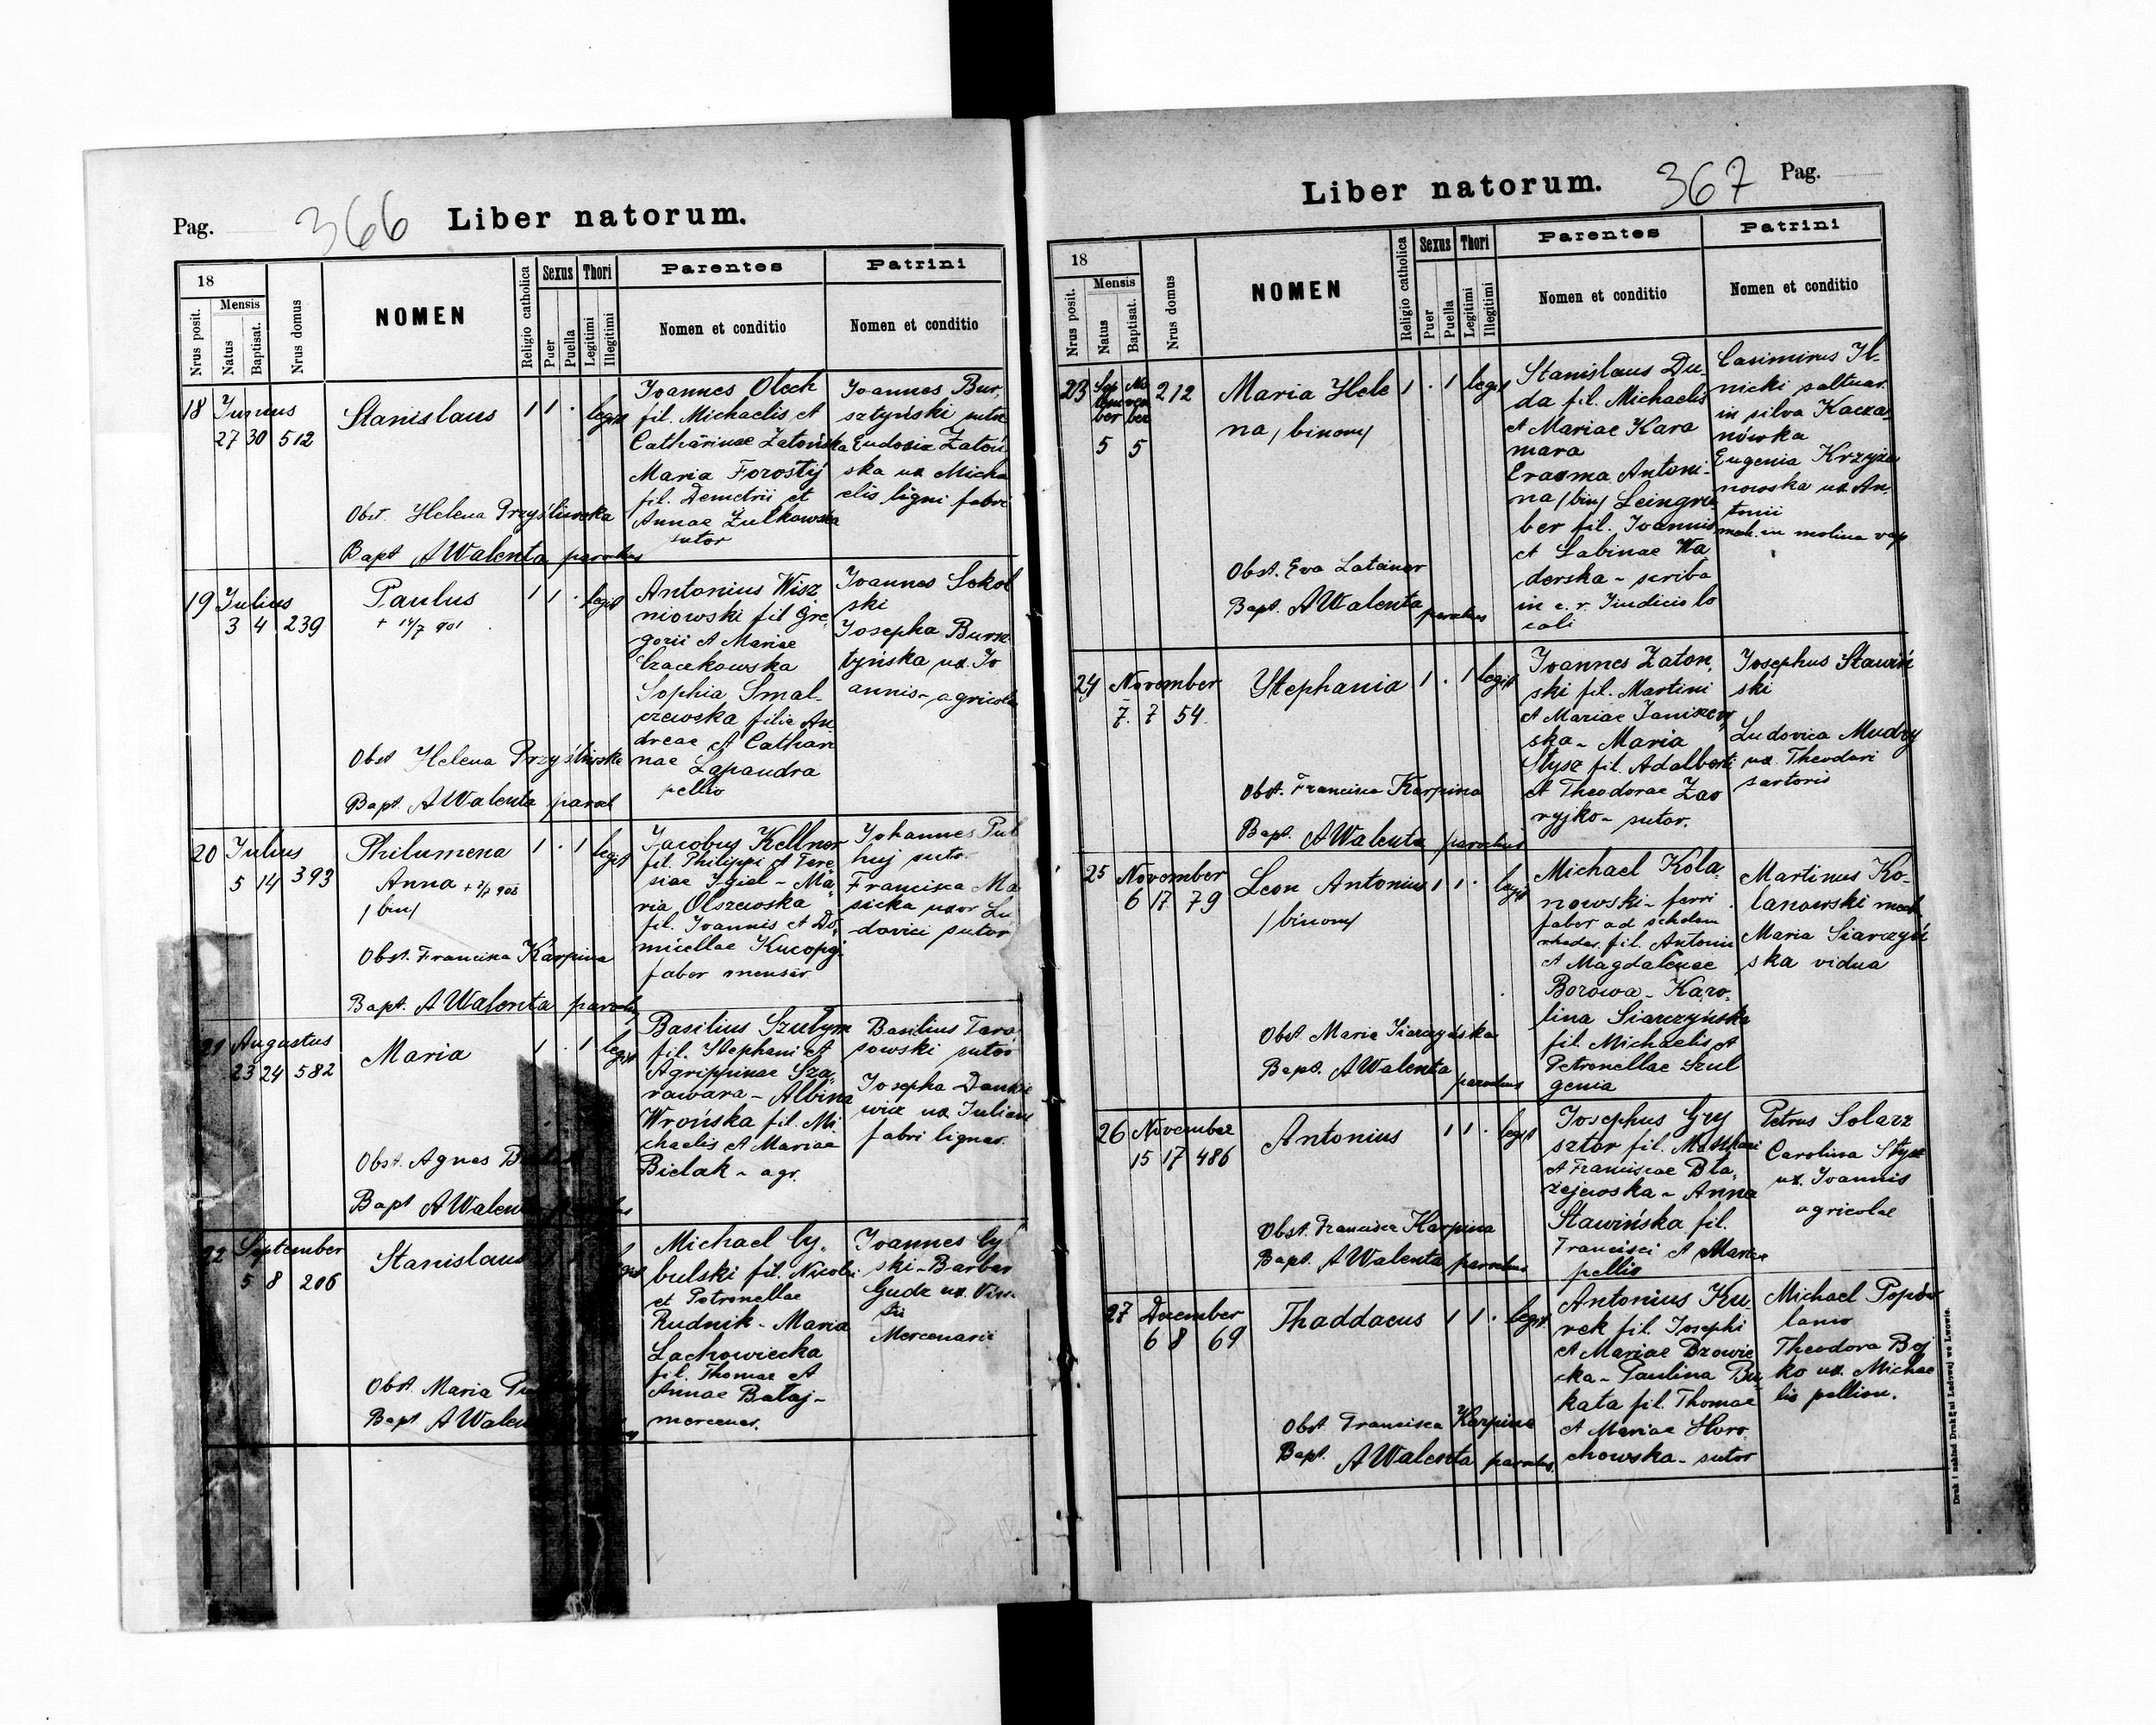 Pag. 366 Liber natorum.
18
Mensis
Nrus posit.
Natus
Baptisat.
Nrus domus
NOMEN
Religio catholica
Sexus
Puer
Puella
Thori
Legitimi
Illegitimi
Parentes
Nomen et conditio
Patrini
Nomen et conditio
18 Junius
27 30 512
Stanislaus
1 1 . legit
Obst. Helena
Bapt A Walenta parochus
Joannes Olech
fil. Michaelis et
Catharinae Zatońska
Maria Forostij
fil. Demetrii et
Annae Żułkowska
sutor
Joannes Bur,
sztyński sutor
Eudoxia Zatoń
ska ux Micha
elis ligni fabri
19 Julius
3 4 239
Paulus
+ 14/7 901
1 1 . legit
Obst Helena
Bapt. A Walenta paroch
Antonius Wisz
niowski fil Gre,
gorii et Mariae
Czaczkowska
Sophia Smal-
czewska filia An,
dreae et Cathari
nae Łapandra
pellio
Joannes Sokol
ski
Josepha Bursz
tyńska ux. Jo
annis - agricola
20 Julius
5 14 393
Philumena
Anna
/bin/
1 . 1 legit
Obst. Francisca Karpina
Bapt. A Walenta paroch
Jacobus Kellner
fil. Philippi et Tere,
siae Igiel - Ma,
ria Olszewska
fil. Joannis et Do,
micellae
faber mensar.
Johannes
huj sutor
Francisca Ma
sicka uxor Lu
dovici sutor
21 Augustus
23 24 582
Maria
1 . 1 legit
Obst. Agnes
Bapt A Walenta
Basilius Szutym
fil. Stephani et
Agrippinae Sza,
rawara - Albina
Wrońska fil. Mi
chaelis et Mariae
Bielak - agr.
Basilius Tara
sowski sutor
Josepha
wicz ux Juliani
fabri lignar.
22 September
5 8 206
Stanislaus
legit
Obst. Maria
Bapt A Walenta
Michael Cy,
bulski fil. Nicolai
et Petronellae
Rudnik - Maria
Lachowiecka
fil. Thomae et
Annae Bataj -
mercenar.
Joannes Cy
ski - Barbar
Gudz ux.
Mercenarii
Liber natorum. 367 Pag.
18
Mensis
Nrus posit.
Natus
Baptisat.
Nrus domus
NOMEN
Religio catholica
Sexus
Puer
Puella
Thori
Legitimi
Illegitimi
Parentes
Nomen et conditio
Patrini
Nomen et conditio
23 212
5 5
Maria Hele
na /binom/
1 . 1 legit
Obst. Eva Lateiner
Bapt. A Walenta parochus
Stanislaus Du-
da fil. Michaelis
et Mariae Kara
mara
Erazma Antoni-
na /bin/ Leingru
ber fil. Joannis
et Sabinae Wa
derska - scriba
in c. r. Judicio lo
cali
Casimirus Il-
nicki saltuar.
in silva Kacza,
nówka
Eugenia Krzyża
nowska ux An,
tonii
mach. in molina vap
24 November
7. 7 54.
Stephania
1 . 1 legit
Obst. Francisca Karpina
Bapt. A Walenta parochus
Joannes Zaton,
ski fil. Martini
et Mariae Janiszew
ska - Maria
Stysz fil. Adalberti
et Theodorae Zao
ryjko - sutor.
Josephus Stawiń
ski
Ludovica Mudry
ux. Theodori
sartoris
25 November
6 17 79
Leon Antonius
/binom/
1 1 . legit
Obst. Maria Siarczyńska
Bapt. A Walenta parochus
Michael Kola,
nowski - ferri
faber ad scholam
rhedar. fil. Antonii
et Magdalenae
Borowa - Karo,
lina Siarczyńska
fil. Michaelis et
Petronellae Szul
genia
Martinus Ko-
lanowski mach.
Maria Siarczyń
ska vidua
26 November
15 17 486
Antonius
1 1 . legit
Obst. Francisca Karpina
Bapt. A Walenta parochus
Josephus Gry
sztar fil.
et Franciscae Bła,
żejewska - Anna
Stawińska fil.
Francisci et Mariae
pellio
Petrus Solarz
Carolina Stysz
ux. Joannis
agricolae
27 December
6 8 69
Thaddaeus
1 1 . legit.
Obst Francisca Karpina
Bapt. A Walenta parochus
Antonius Ku,
rek fil. Josephi
et Mariae Brzowic
ka - Paulina Bu,
kata fil. Thomae
et Mariae Horo,
chowska - sutor
Michael Popów
lanio
Theodora Boj
ko ux. Michae
lis pellion.